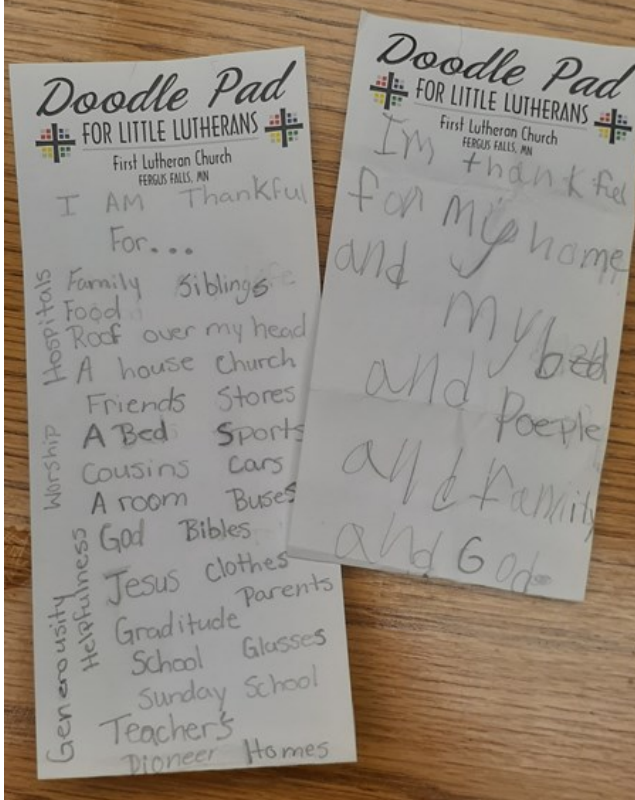 Doodle Pad
FOR LITTLE LUTHERANS
First Lutheran Church
FERGUS FALLS, MN
I AM Thankful
For...
Family Siblings
Food
Roof over my head
A house Church
Friends Stores
A Bed Sports
Cousins Cars
A room Buses
God Bibles
Jesus Clothes
Parents
Graditude
School Glasses
Sunday School
Teachers
Pioneer Homes
Hospitals
Worship
Helpfulness
Generousity
Doodle Pad
FOR LITTLE LUTHERANS
First Lutheran Church
FERGUS FALLS, MN
I'm thankful
for my home
and
my bed
and Poeple
and family
and God